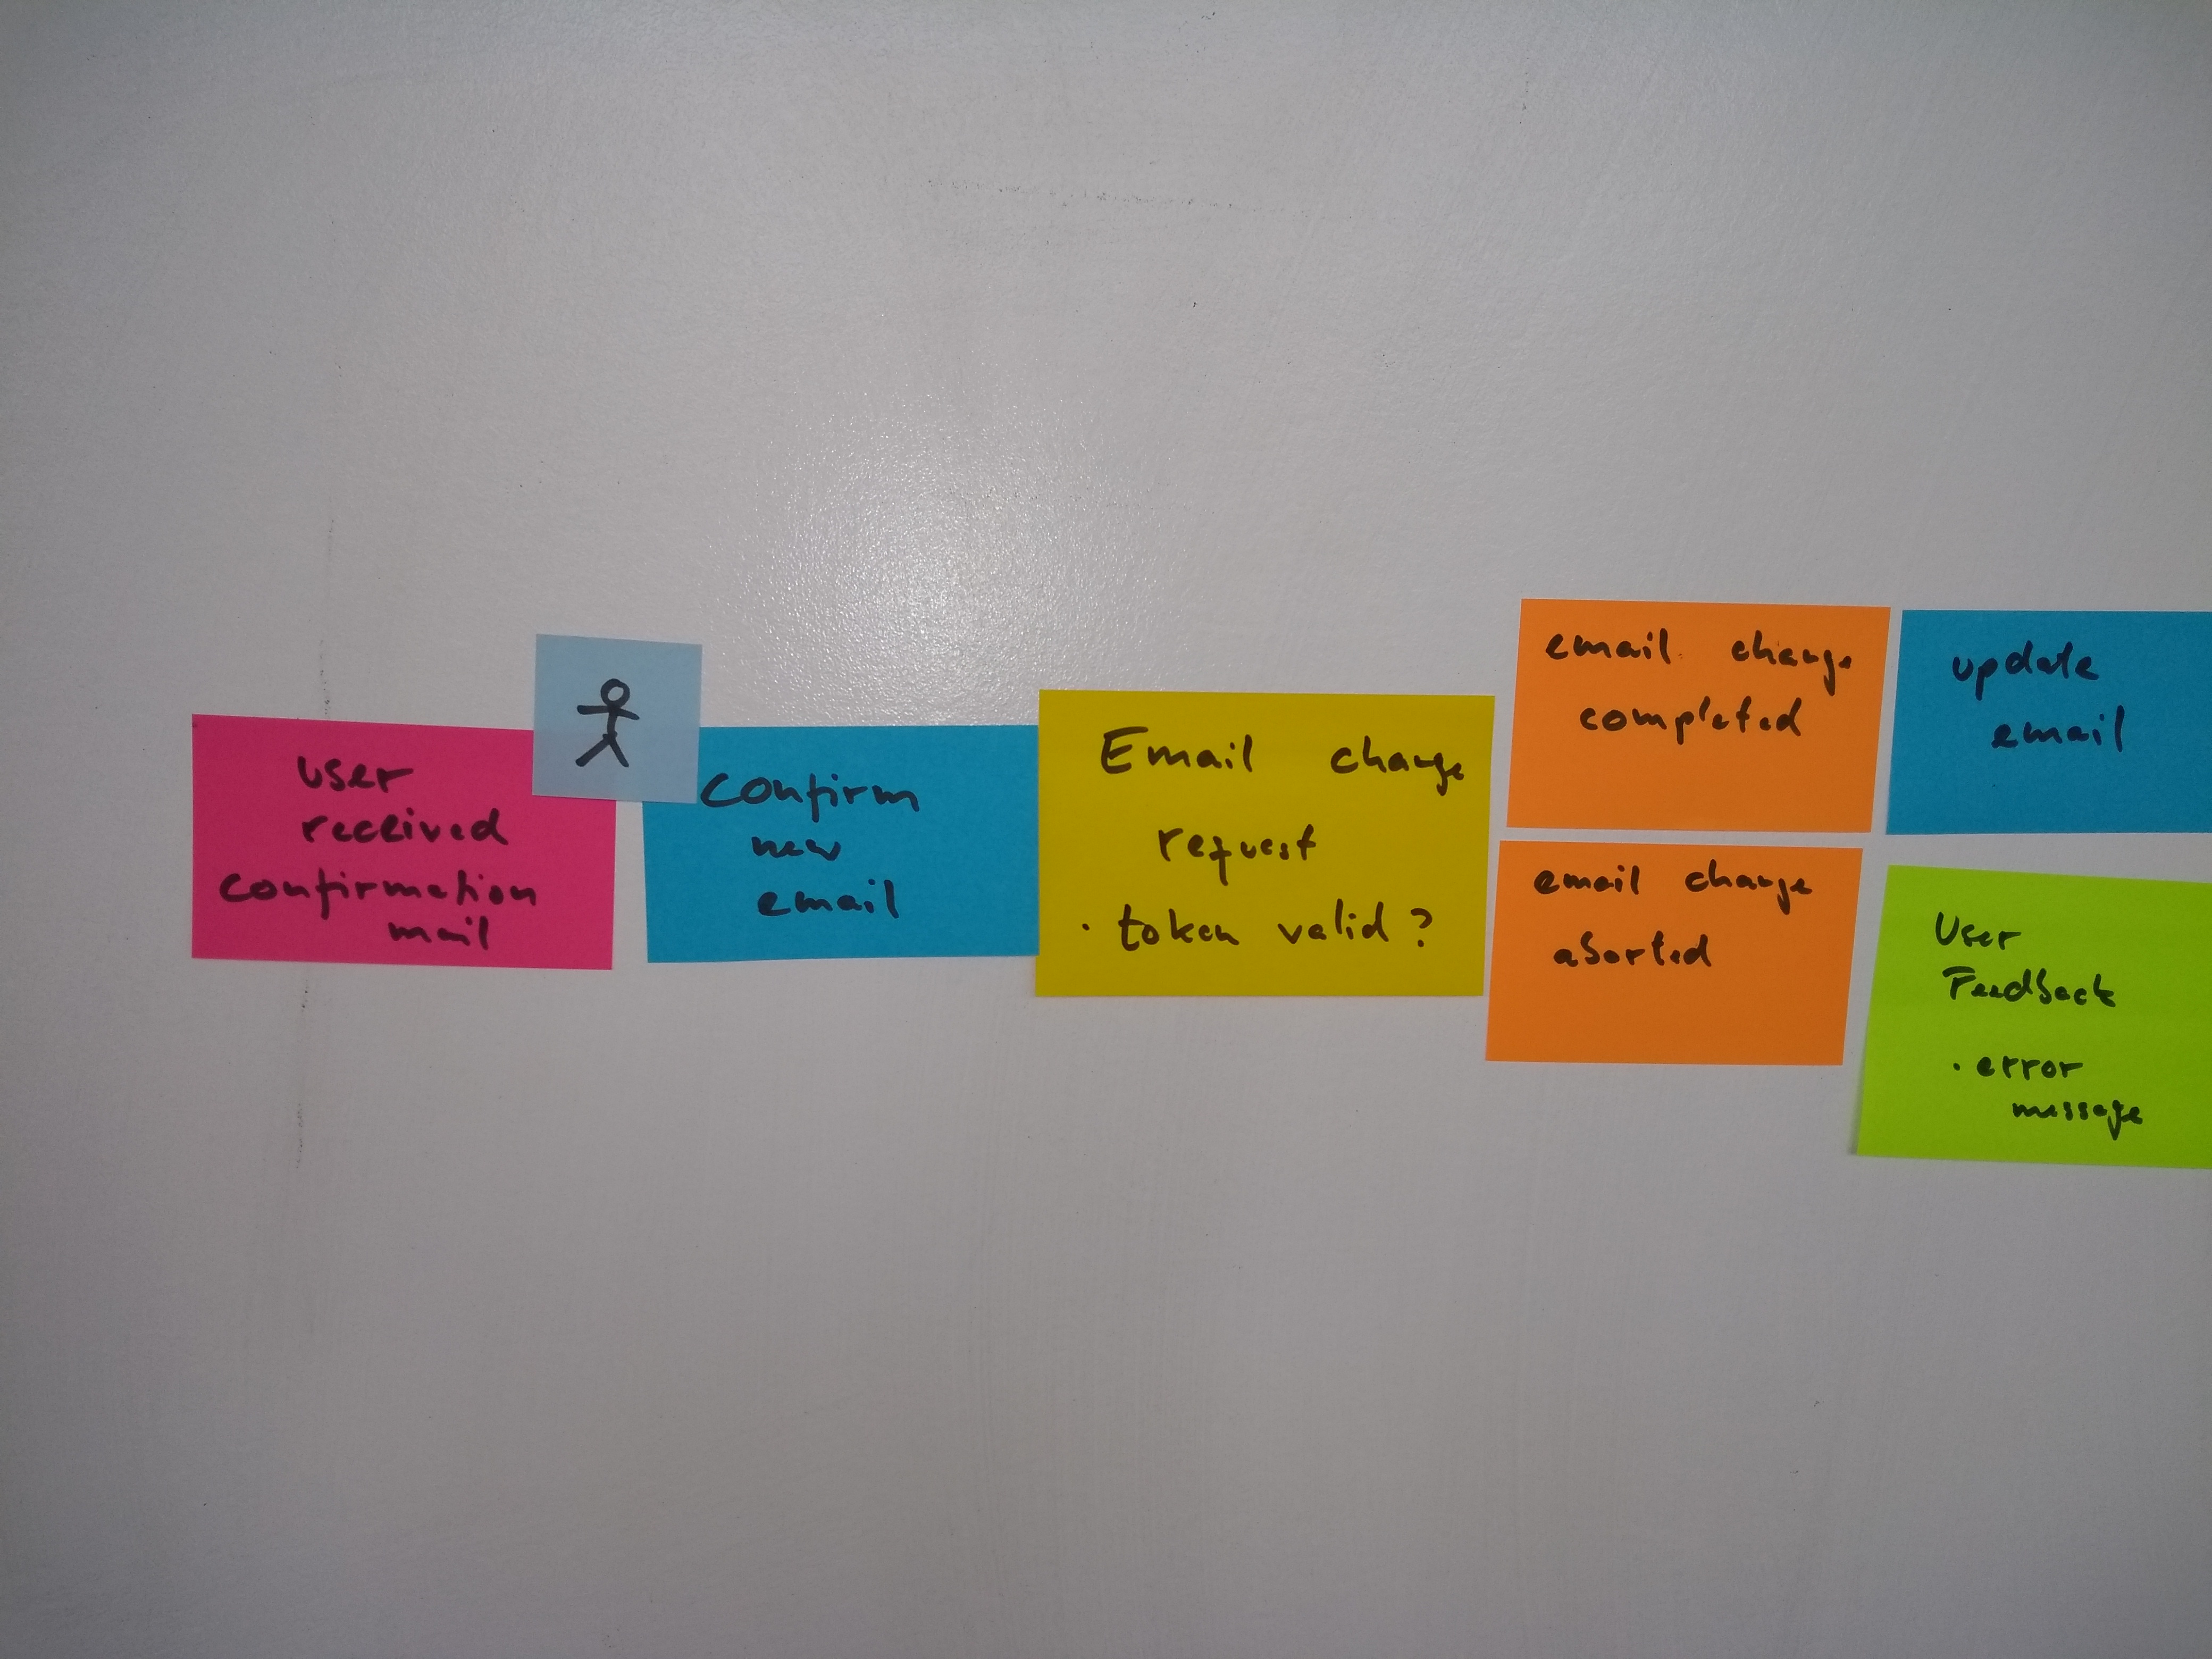 user
received
confirmation
mail
Confirm
new
email
Email change
request
· token valid?
email change
completed
email change
aborted
update
email
User
Feedback
· error
message